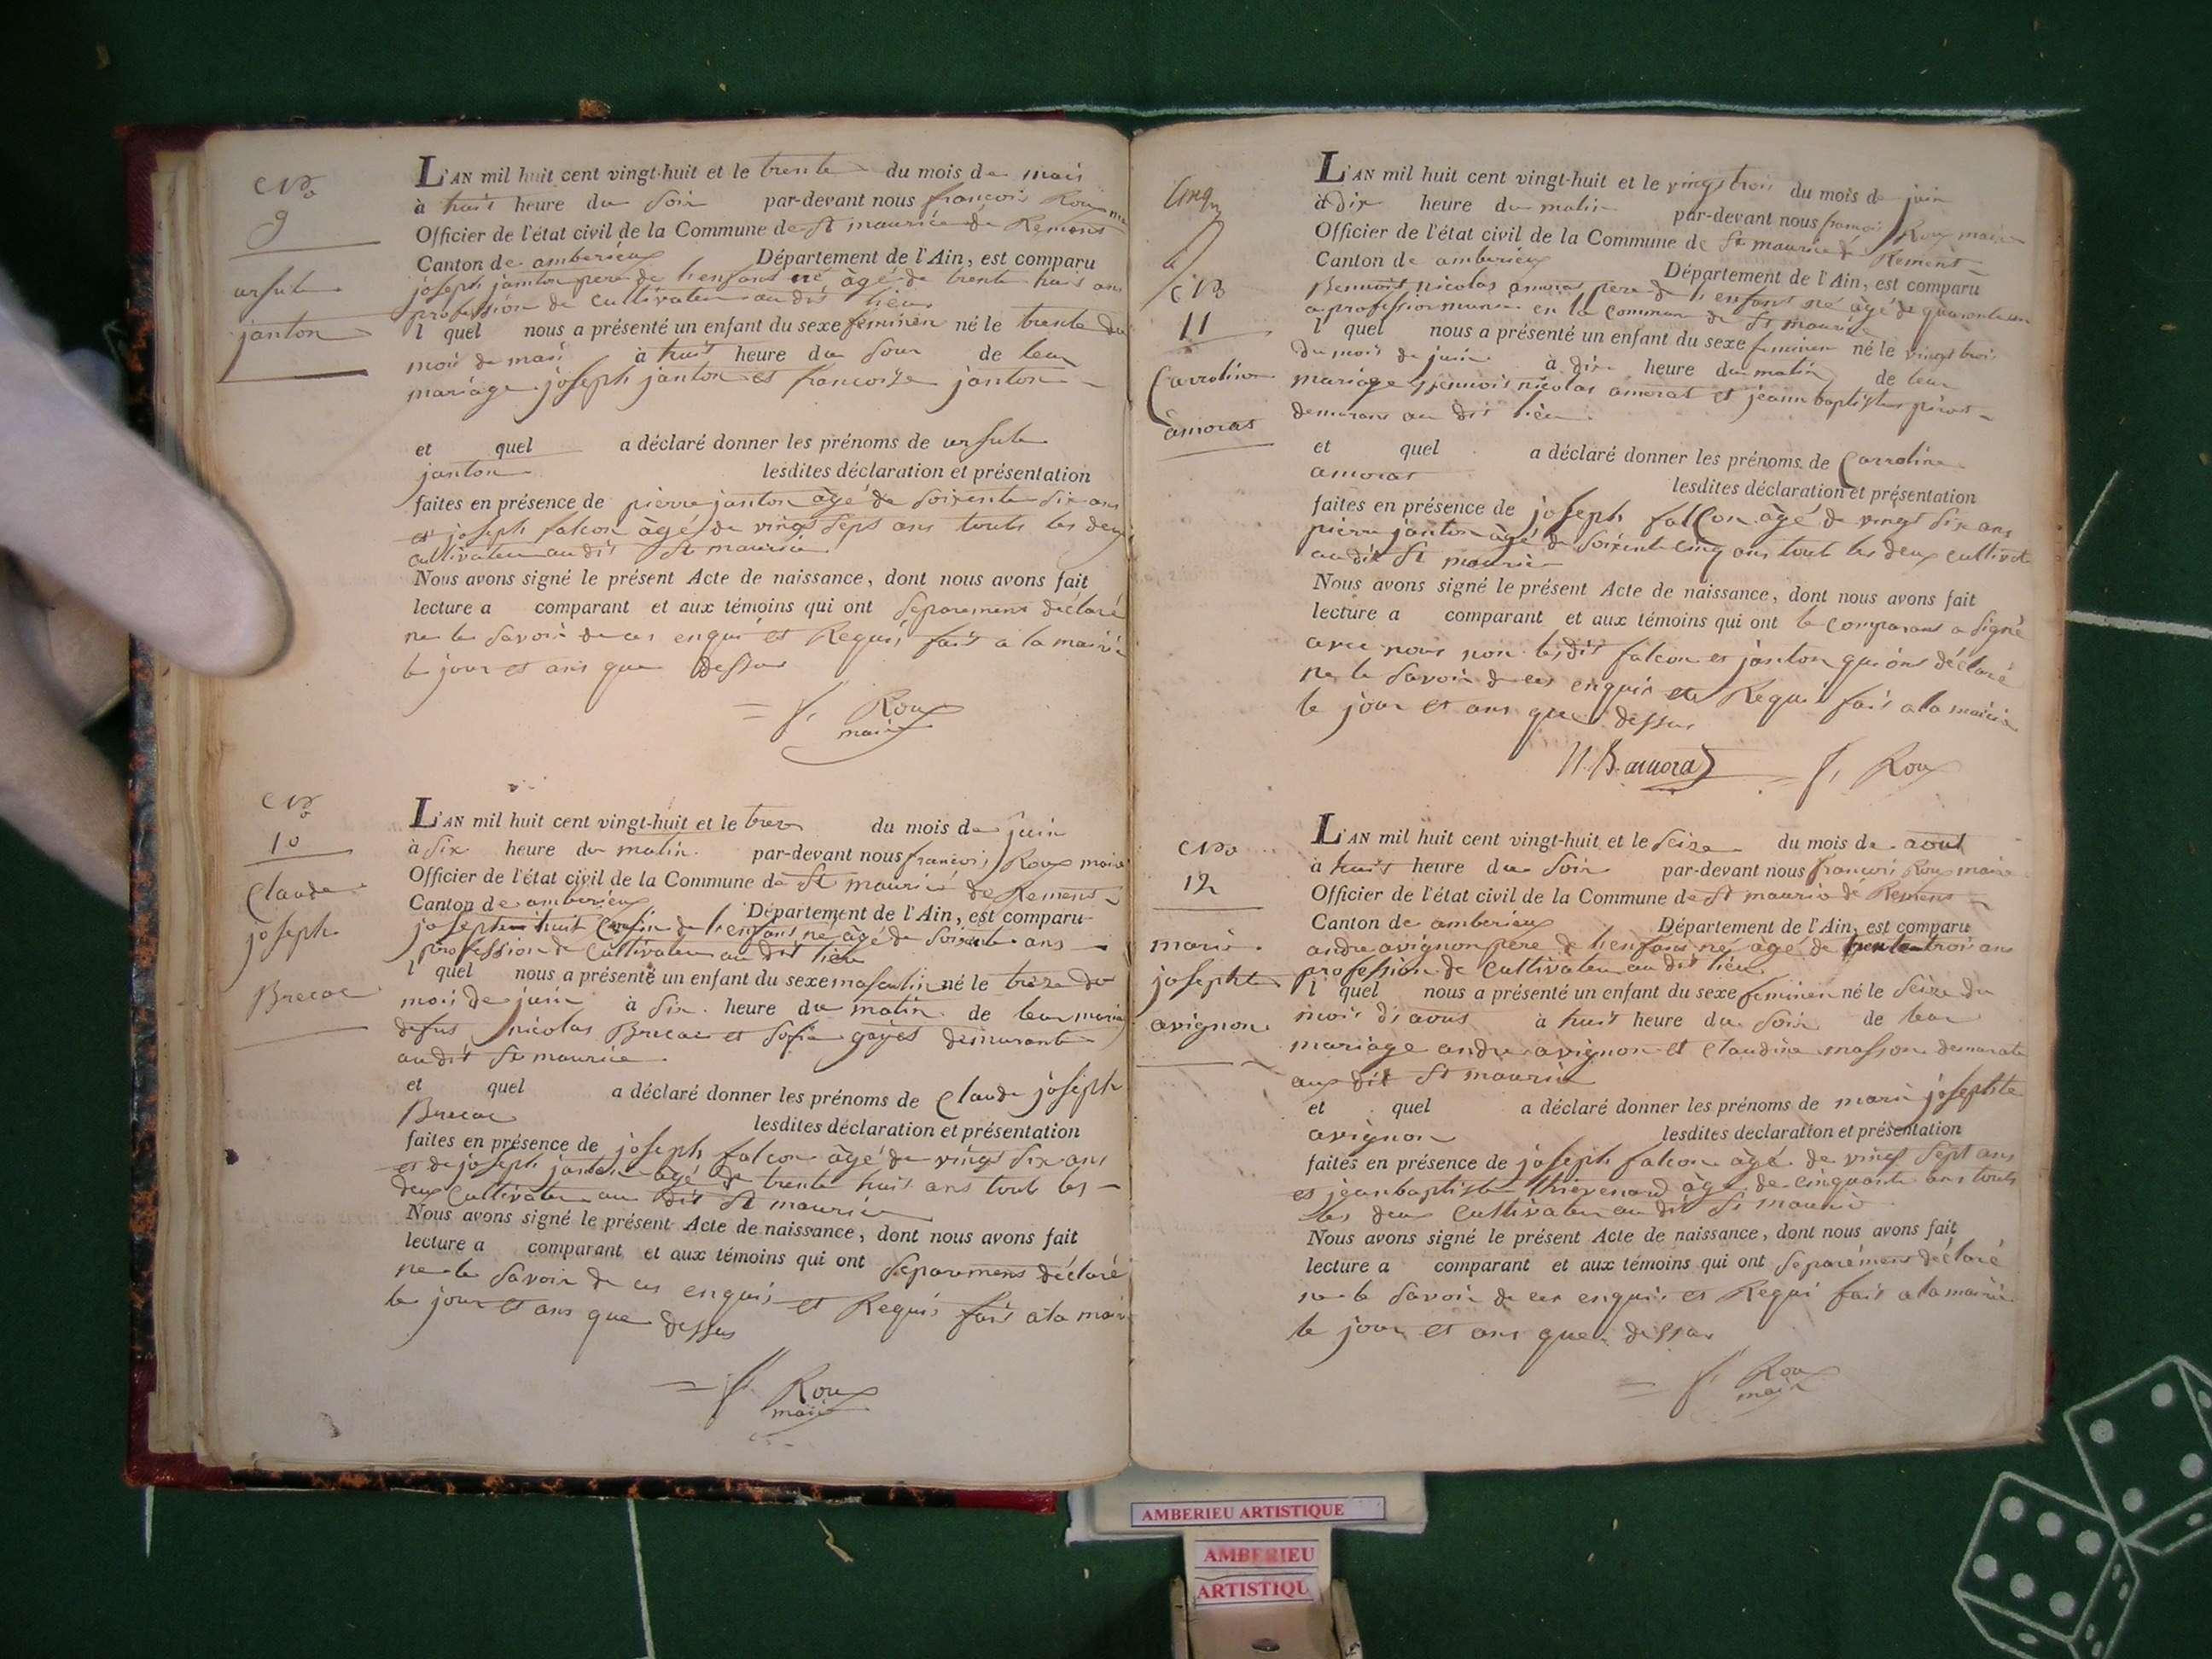 No
9
ursule
janton
L'AN mil huit cent vingt-huit et le trente du mois de mai
à huit heure du soir par-devant nous francois Roux
Officier de l'état civil de la Commune de St maurice de Remens
Canton de amberieux Département de l'Ain, est comparu
joseph janton pere de l'enfant né âgé de trente huit ans
profession de Cultivateur au dit lieu
l quel nous a présenté un enfant du sexe feminen né le trente du
mois de mai à huit heure du soir de leur
mariage joseph janton et francoise janton
et quel a déclaré donner les prénoms de ursule
janton lesdites déclaration et présentation
faites en présence de pierre janton âgé de soixente six ans
et joseph falcon âgé de vingt sept ans touts les deux
cultivateur au dit St maurice
Nous avons signé le présent Acte de naissance, dont nous avons fait
lecture a comparant et aux témoins qui ont separement déclaré
ne le savoir de ces enquis et Requis fait a la mairie
le jour et ans que dessus
f. Roux
maire
No
10
Claude
joseph
Brecac
L'AN mil huit cent vingt-huit et le treze du mois de juin
à six heure du matin par-devant nous francois Roux maire
Officier de l'état civil de la Commune de St maurice de Remens
Canton de amberieux Département de l'Ain, est comparu
joseph huit de l'enfant né âgé de soixente ans
profession de Cultivateur au dit lieu
l quel nous a présenté un enfant du sexe masculin né le treze du
mois de juin à six heure du matin de leur
nicolas Brecac et Sofie gayet demurante
au dit St maurice
et quel a déclaré donner les prénoms de Claude joseph
Brecac lesdites déclaration et présentation
faites en présence de joseph falcon âgé de vingt six ans
et de joseph janton âgé de trente huit ans tout les
deux Cultivateur au dit St maurice
Nous avons signé le présent Acte de naissance, dont nous avons fait
lecture a comparant et aux témoins qui ont separement déclaré
ne le savoir de ces enquis et Requis fait a la mairie
le jour et ans que dessus
f. Roux
maire
No
11
Carroline
amorat
L'AN mil huit cent vingt-huit et le vingt trois du mois de juin
à dix heure du matin par-devant nous francois Roux maire
Officier de l'état civil de la Commune de St maurice de Remens
Canton de amberieux Département de l'Ain, est comparu
Bennoit nicolas amorat pere de l'enfant né âgé de quarante un
a profession munie en la commune de St maurice
l quel nous a présenté un enfant du sexe feminen né le vingt trois
du mois de juin à dix heure du matin de leur
mariage Bennoit nicolas amorat et jeanne baptiste
demurant au dit lieu
et quel a déclaré donner les prénoms de Carroline
amorat lesdites déclaration et présentation
faites en présence de joseph falcon âgé de vingt six ans
pierre janton âgé de soixente cinq ans tout les deux cultivat
au dit St maurice
Nous avons signé le présent Acte de naissance, dont nous avons fait
lecture a comparant et aux témoins qui ont le comparant a signé
avec nous non lesdit falcon et janton qui ont déclaré
ne le savoir de ces enquis et Requis fait a la mairie
le jour et ans que dessus
N. B. amorat f. Roux
No
12
marie
josephte
avignon
L'AN mil huit cent vingt-huit et le seize du mois de aout
à huit heure du soir par-devant nous francois Roux maire
Officier de l'état civil de la Commune de St maurice de Remens
Canton de amberieux Département de l'Ain, est comparu
andre avignon pere de l'enfant né âgé de trente trois ans
profession de Cultivateur au dit lieu
l quel nous a présenté un enfant du sexe feminen né le seize du
mois d'aout à huit heure du soir de leur
mariage andre avignon et Claudine masson demurate
aux dit St maurice
et quel a déclaré donner les prénoms de marie josephte
avignon lesdites declaration et présentation
faites en présence de joseph falcon âgé de vingt sept ans
et jean baptiste thievenard âgé de cinquante ans touts
les deux Cultivateur au dit St maurice
Nous avons signé le présent Acte de naissance, dont nous avons fait
lecture a comparant et aux témoins qui ont separément déclaré
ne le savoir de ces enquis et Requi fait a la mairie
le jour et ans que dessus
f. Roux
maire
AMBERIEU ARTISTIQUE
AMBERIEU
ARTISTIQU